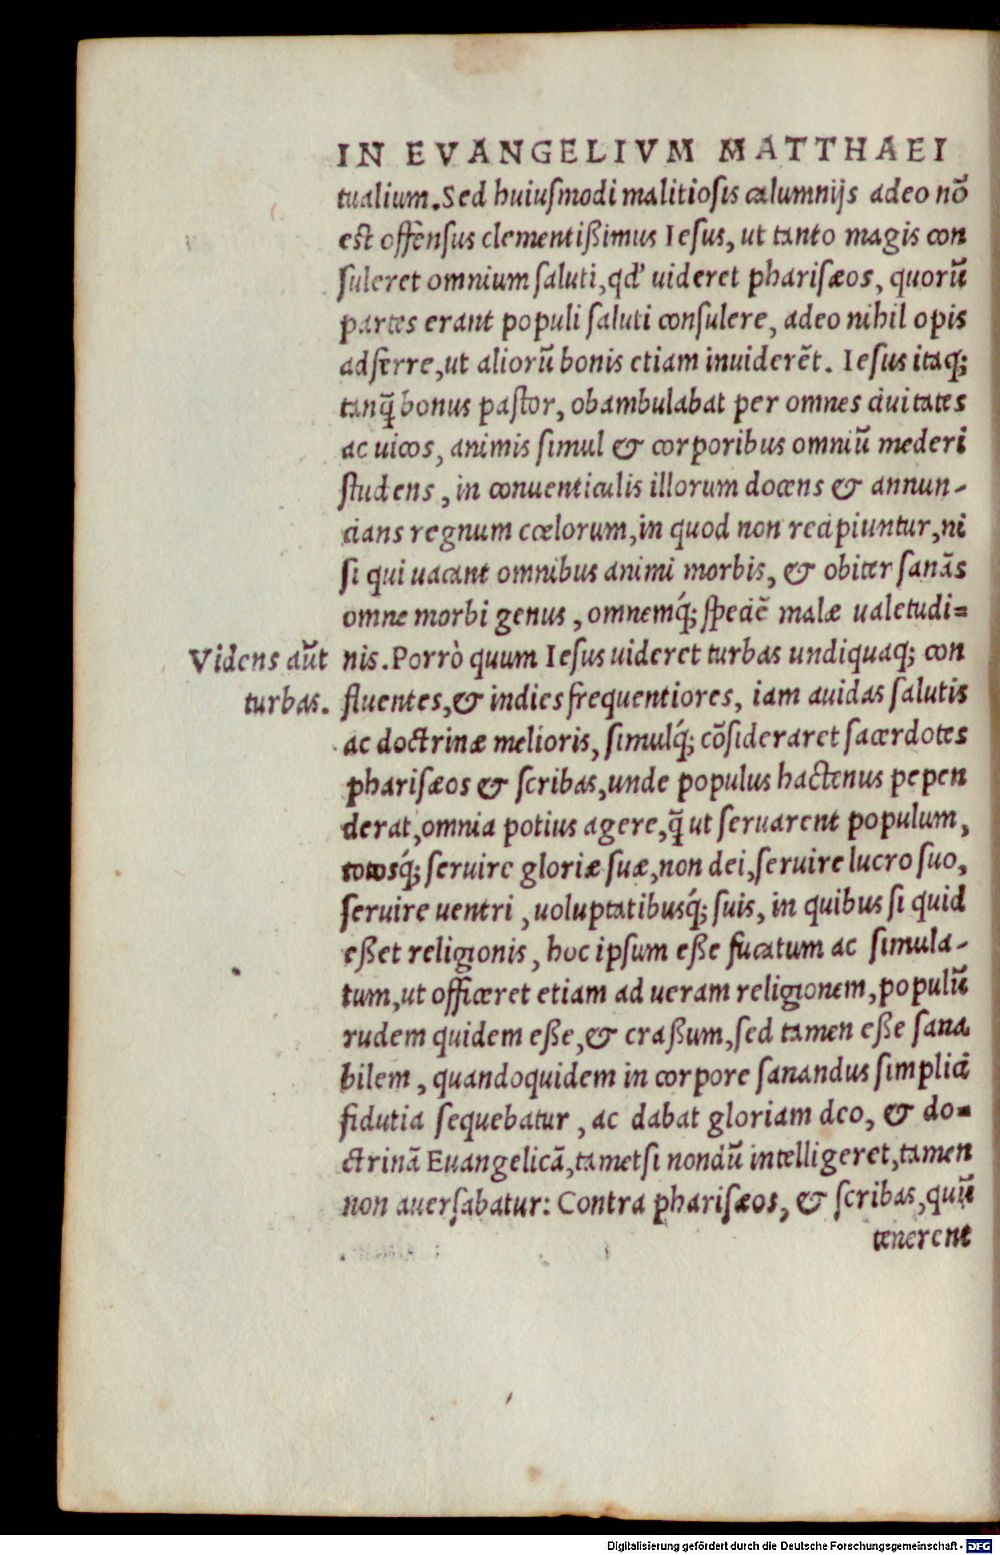 IN EVANGELIVM MATTHAEI
tualium. Sed huiuſmodi malitioſis calumnijs adeo nō
eſt offenſus clementißimus Ieſus, ut tanto magis con
ſuleret omnium ſaluti, qd' uideret phariſæos, quorū
partes erant populi ſaluti conſulere, adeo nihil opis
adferre, ut aliorū bonis etiam inuiderēt. Ieſus itaq;
tanq̃ bonus paſtor, obambulabat per omnes ciuitates
ac uicos, animis ſimul & corporibus omniū mederi
ſtudens, in conuenticulis illorum docens & annun-
cians regnum cœlorum, in quod non recipiuntur, ni
ſi qui uacant omnibus animi morbis, & obiter ſanãs
omne morbi genus, omnemq́; ſpeciẽ malæ ualetudi=
Videns aūt
turbas.
nis. Porrò quum Ieſus uideret turbas undiquaq; con
fluentes, & indies frequentiores, iam auidas ſalutis
ac doctrinæ melioris, ſimulq́; cōſideraret ſacerdotes
phariſæos & ſcribas, unde populus hactenus pepen
derat, omnia potius agere, q̃ ut ſeruarent populum,
totosq́; ſeruire gloriæ ſuæ, non dei, ſeruire lucro ſuo,
ſeruire uentri, uoluptatibusq́; ſuis, in quibus ſi quid
eßet religionis, hoc ipſum eße fucatum ac ſimula-
tum, ut officeret etiam ad ueram religionem, populū
rudem quidem eße, & craßum, ſed tamen eße ſana
bilem, quandoquidem in corpore ſanandus ſimplici
fidutia ſequebatur, ac dabat gloriam deo, & do=
ctrinã Euangelicã, tametſi nondū intelligeret, tamen
non auerſabatur: Contra phariſæos, & ſcribas, quū
tenerent
Digitalisierung gefördert durch die Deutsche Forschungsgemeinschaft - DFG